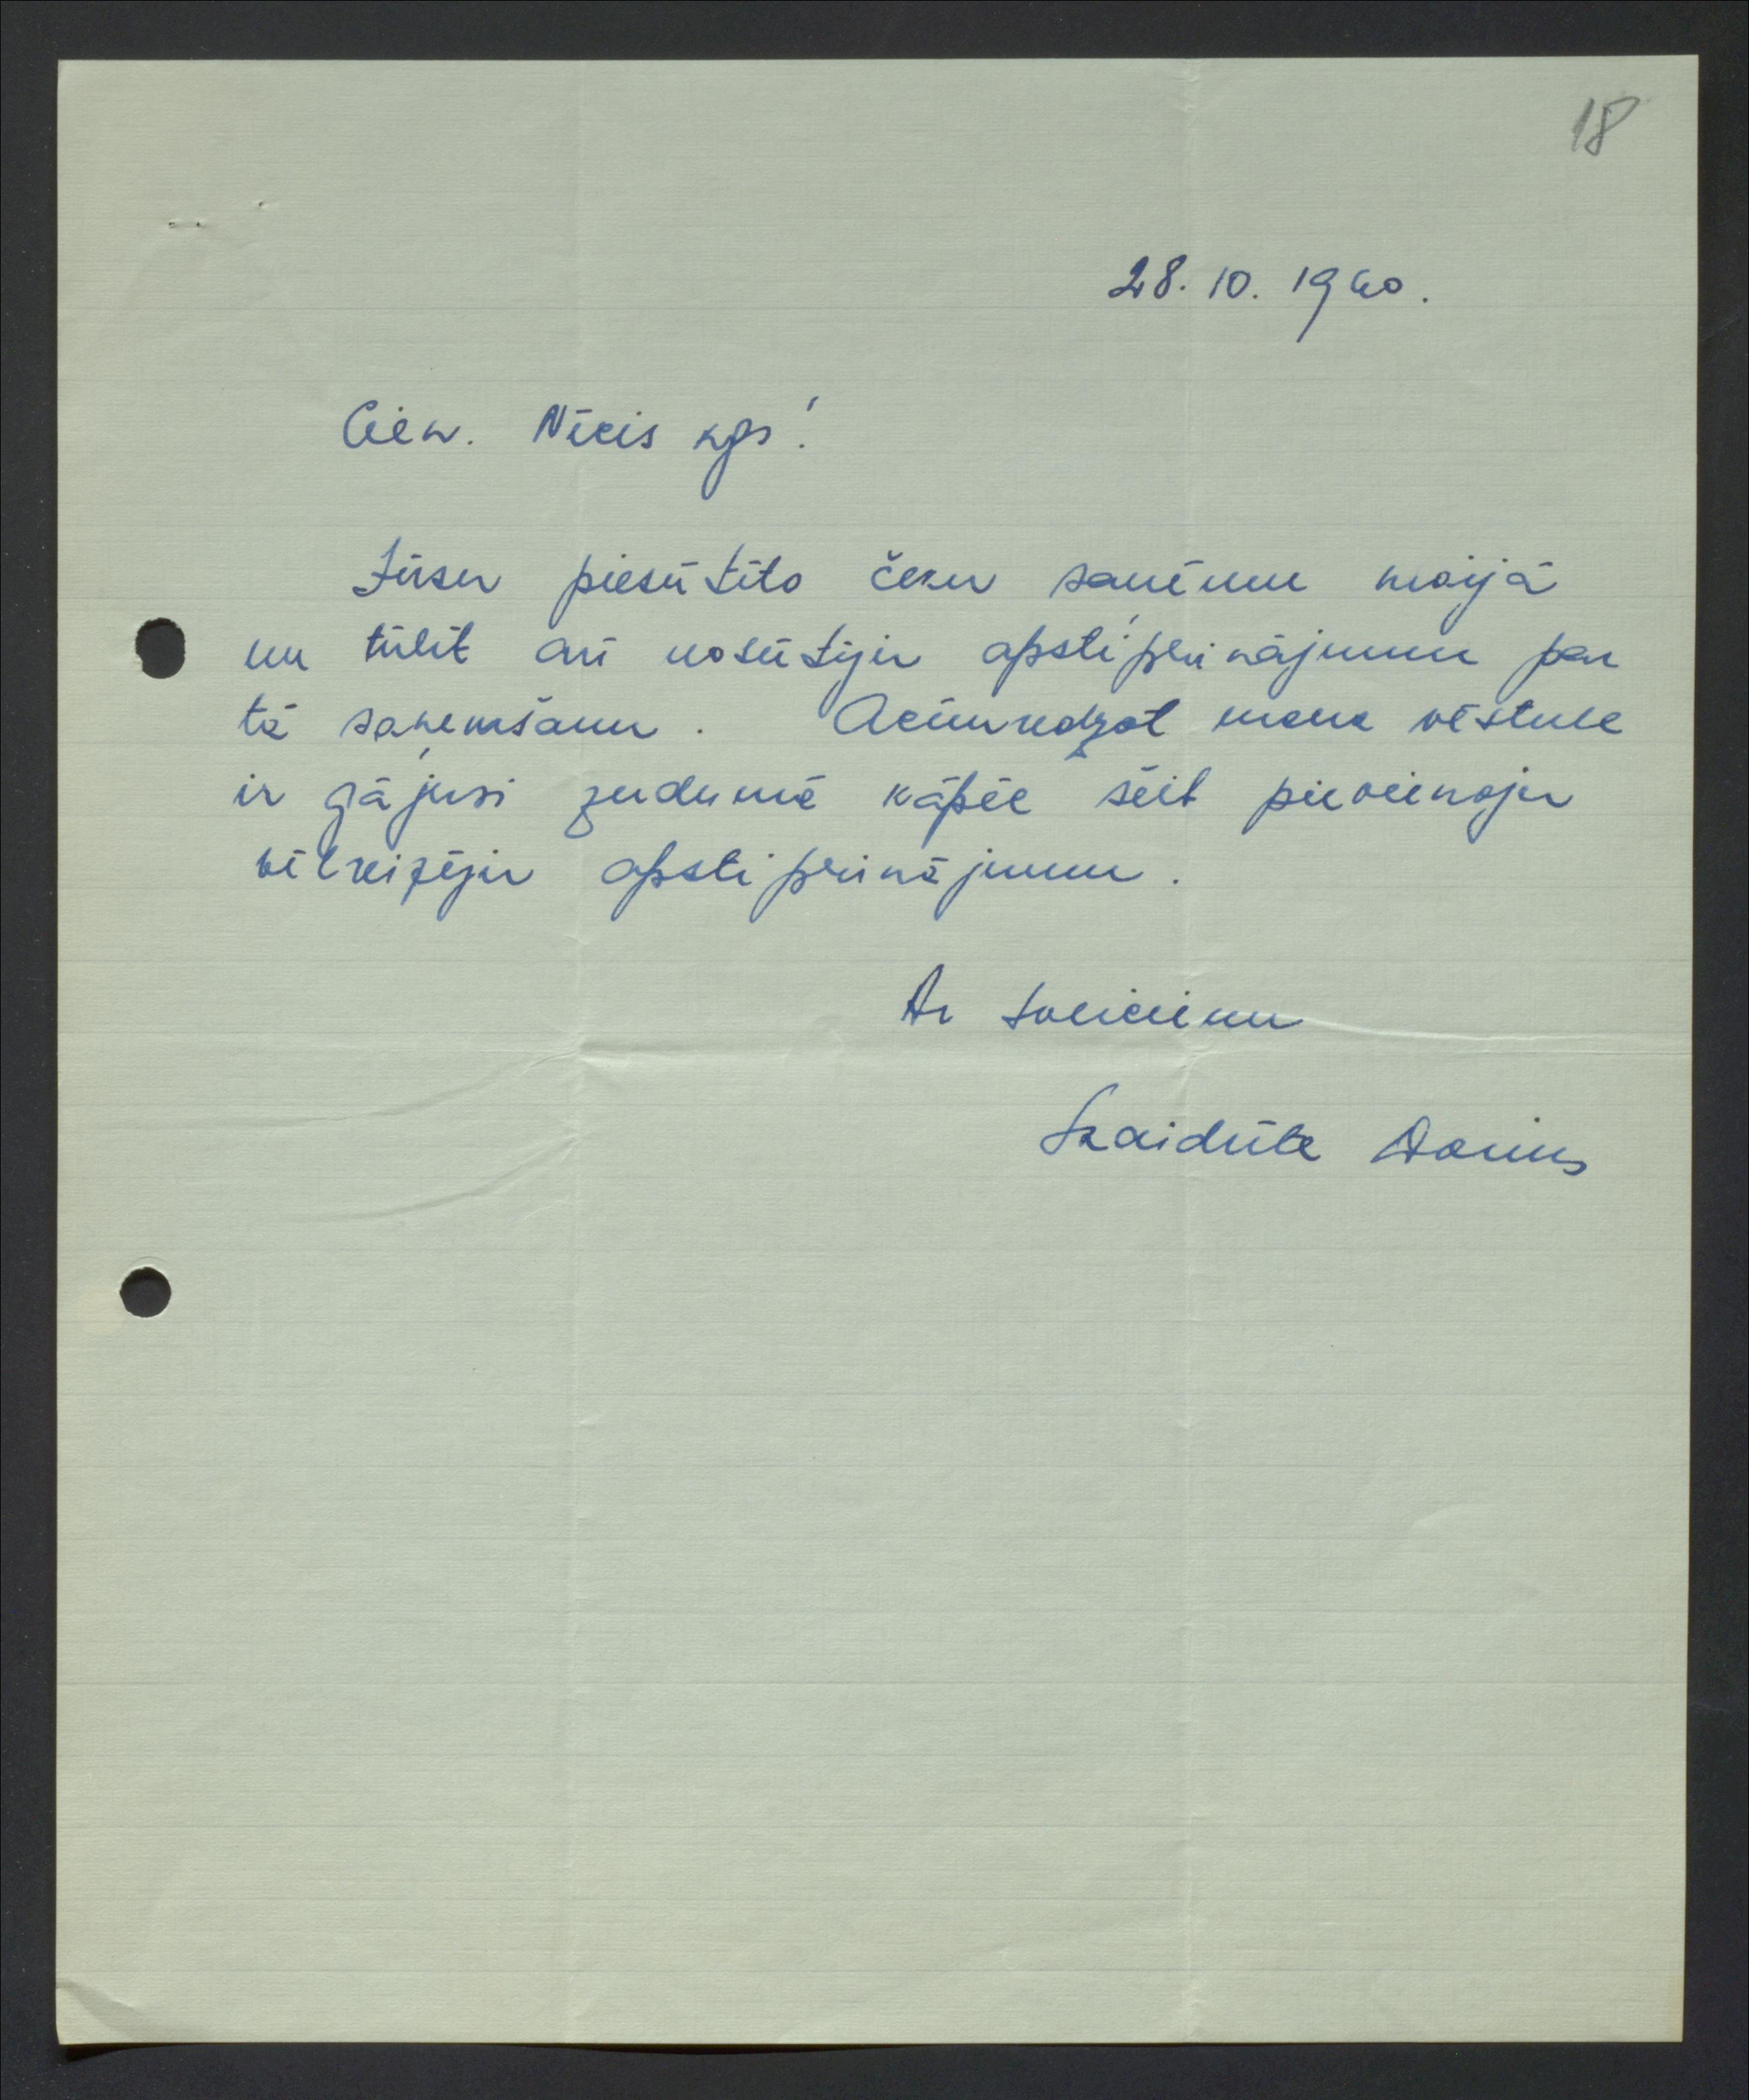 18
28. 10. 1960.
Cien. Nīcis kgs!
Jūsu piesūtīto čeku saņēmu maijā
un tūlīt arī nosūtīju apstiprinājumu par
tā saņemšanu. Acīmredzot mana vēstule
ir gājusi zudumā kāpēc šeit pievienoju
vēlreizēju apstiprinājumu.
Ar sveicienu
Skaidrīte